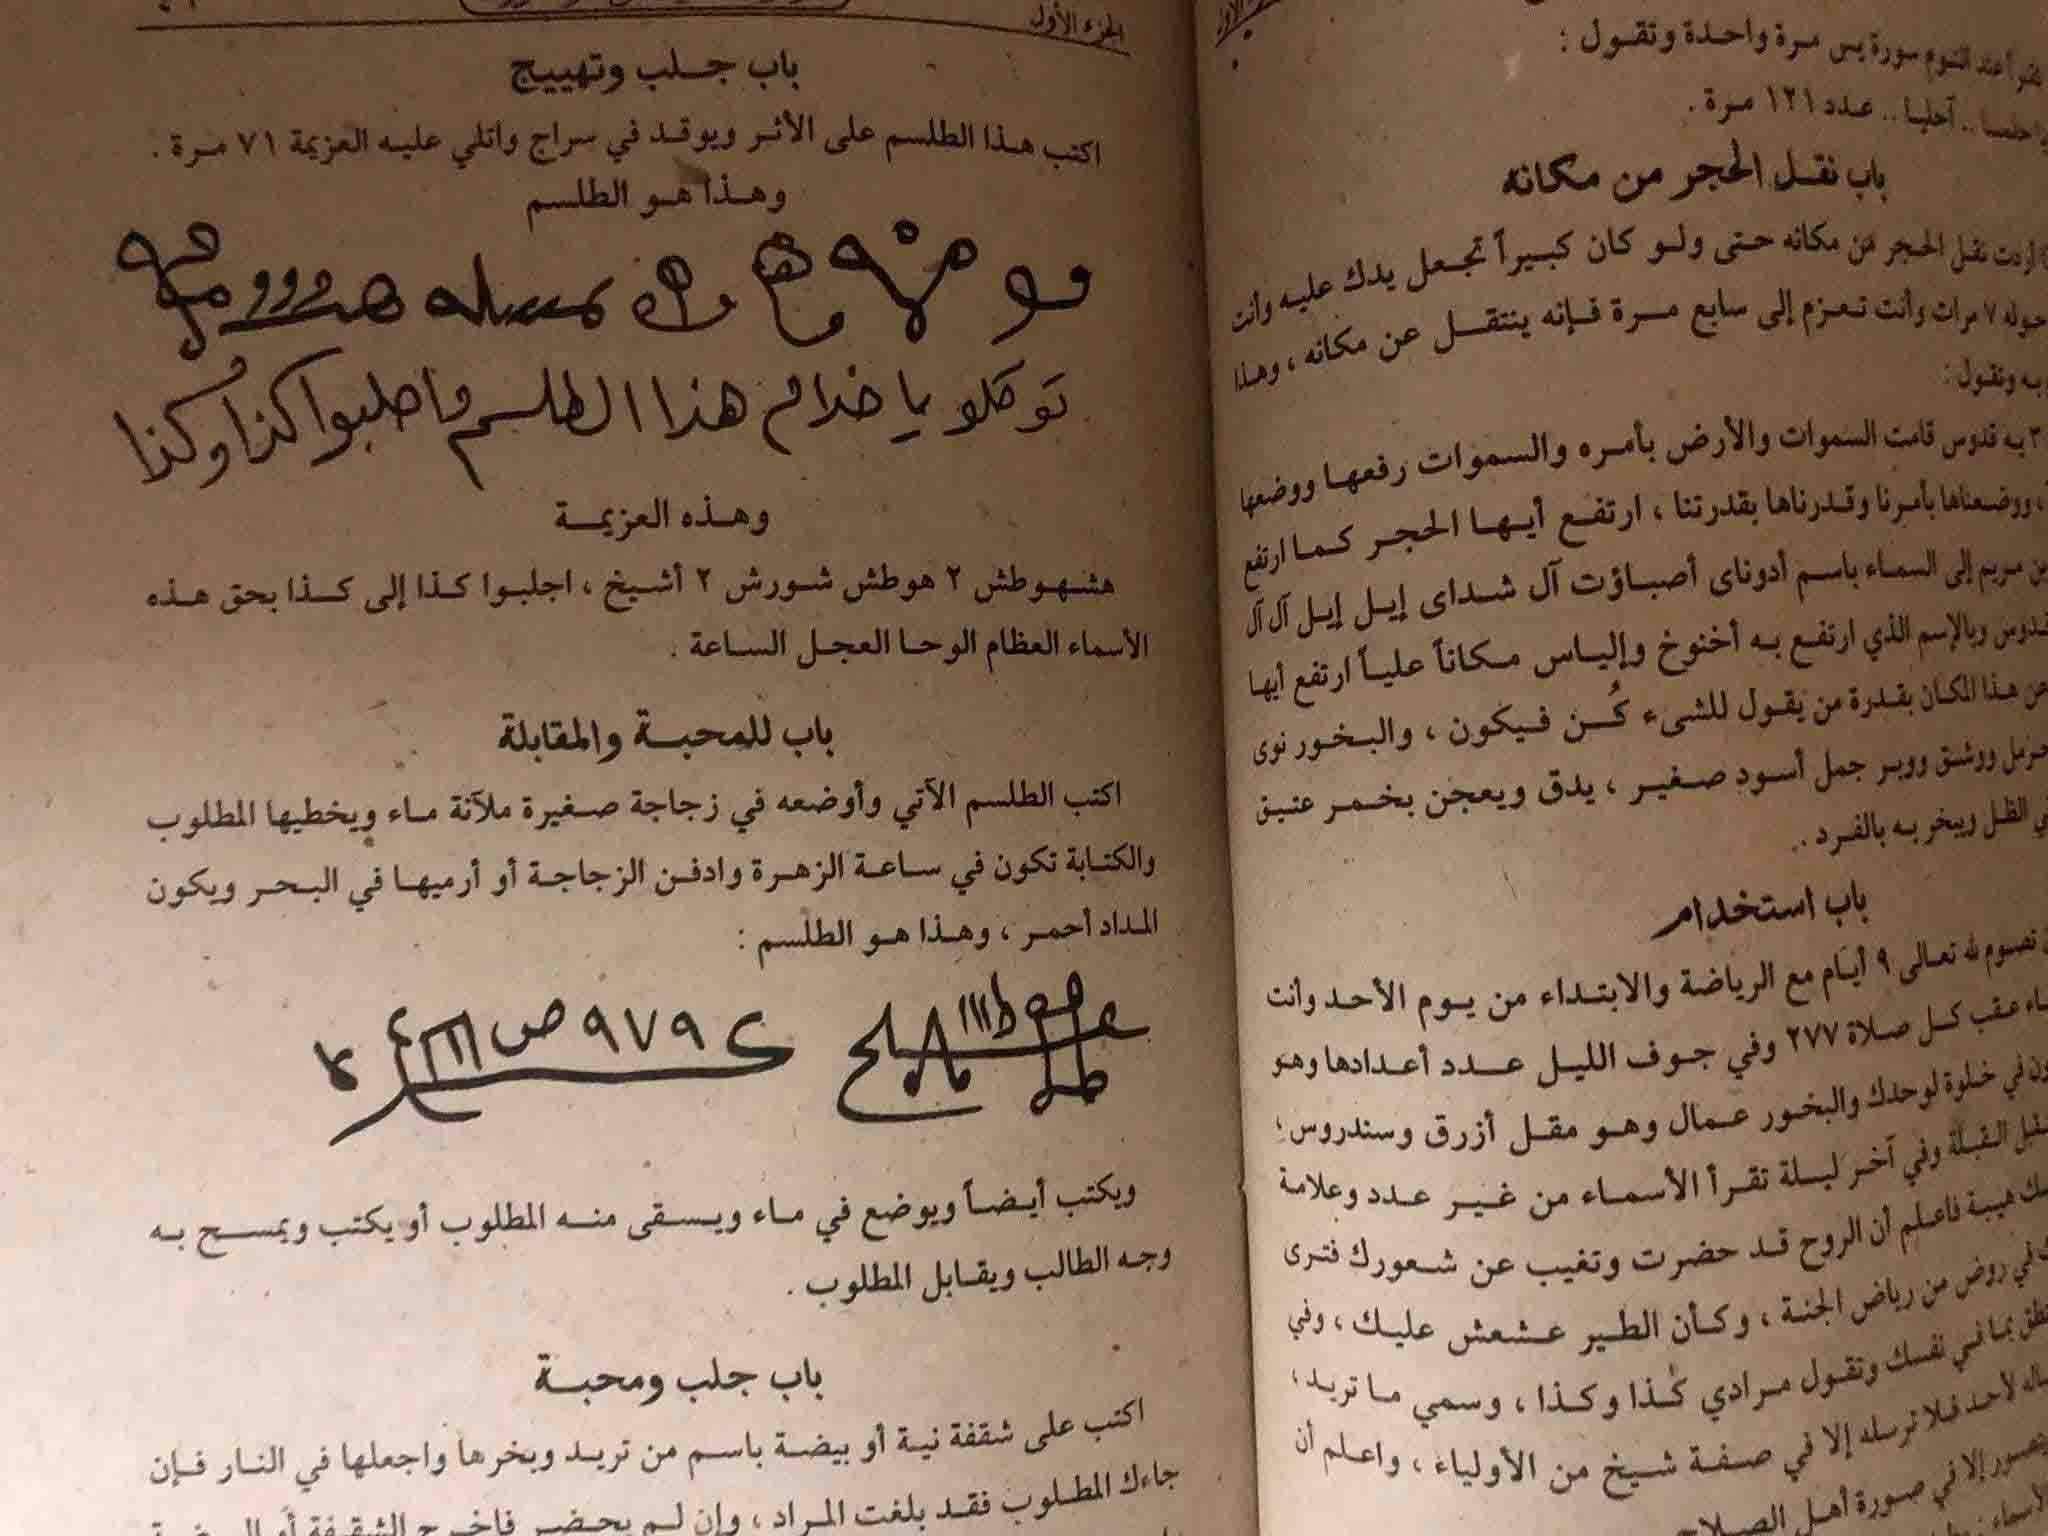 الجزء الأول
يس مرة واحدة وتقول :
آحليا .. عدد ١٢١ مرة .
باب نقل الحجر من مكانه
أردت نقل الحجر من مكانه حتى ولو كان كبيراً تجعل يدك عليه وأنت
حوله ٧ مرات وأنت تعزم إلى سابع مرة فإنه ينتقل عن مكانه ، وهذا
وتقول :
به قدوس قامت السموات والأرض بأمره والسموات رفعها ووضعها
، ووضعناها بأمرنا وقدرناها بقدرتنا ، ارتفع أيها الحجر كما ارتفع
بن مريم إلى السماء باسم أدوناى أصباؤت آل شداى إيل إيل آل آل
قدوس وبالإسم الذي ارتفع به أخنوخ وإلياس مكاناً علياً ارتفع أيها
عن هذا المكان بقدرة من يقول للشيء كُن فيكون ، والبخور نوى
حرمل ووشق ووبر جمل أسود صغير ، يدق ويعجن بخمر عتيق
في الظل ويبخر به بالفرد .
باب استخدام
تصوم لله تعالى ٩ أيام مع الرياضة والابتداء من يوم الأحد وأنت
عقب كل صلاة ٢٧٧ وفي جوف الليل عدد أعدادها وهو
في خلوة لوحدك والبخور عمال وهو مقل أزرق وسندروس ،
القبلة وفي آخر ليلة تقرأ الأسماء من غير عدد وعلامة
هيبة فاعلم أن الروح قد حضرت وتغيب عن شعورك فترى
في روض من رياض الجنة ، وكأن الطير عشعش عليك ، وفي
بما في نفسك وتقول مرادي كذا وكذا ، وسمي ما تريد ،
لأحد فلا ترسله إلا في صفة شيخ من الأولياء ، واعلم أن
إلا في صورة أهل الصلاح
باب جلب وتهييج
اكتب هذا الطلسم على الأثر ويوقد في سراج واتلي عليه العزيمة ٧١ مرة .
وهذا هو الطلسم
توكلو يا خدام هذا الطلسم واجلبوا كذا وكذا
وهذه العزيمة
هشهوطش ٢ هوطش شورش ٢ أشيخ ، اجلبوا كذا إلى كذا بحق هذه
الأسماء العظام الوحا العجل الساعة .
باب للمحبة والمقابلة
اكتب الطلسم الآتي وأوضعه في زجاجة صغيرة ملآنة ماء ويخطيها المطلوب
والكتابة تكون في ساعة الزهرة وادفن الزجاجة أو أرميها في البحر ويكون
المداد أحمر ، وهذا هو الطلسم :
ويكتب أيضاً ويوضع في ماء ويسقى منه المطلوب أو يكتب ويمسح به
وجه الطالب ويقابل المطلوب .
باب جلب ومحبة
اكتب على شقفة نية أو بيضة باسم من تريد وبخرها واجعلها في النار فإن
جاءك المطلوب فقد بلغت المراد ، وإن لم يحضر فاخرج الشقفة أو